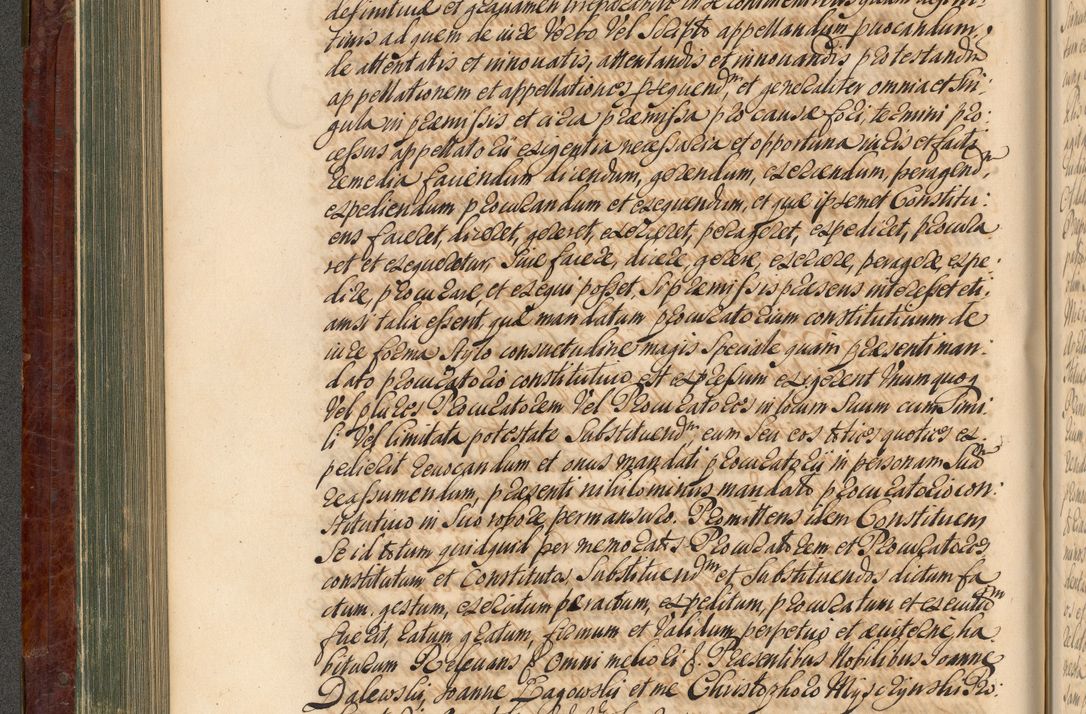 definitiuæ et grauamen irreparabile in se continentibus quam defini-
tiuis ad quem de iure Verbo Vel Scripto appellandum, prouocandum,
de attentatis et innouatis, attentandis et innouandis protestandum
appellationem et appellationes prosequendm et generaliter omnia et Sin-
gula in præmissis et circa præmissa pro causæ fori, termini pro-
cessus appellatorii exigentia necessaria et opportuna iuris et facti
remedia faciendum dicendum, gerendum, exercendum, peragendm,
expediendum procurandum et exequendum, et quæ ipsemet Constitu-
ens faceret, diceret, gereret, exerceret, perageret, expediret, procura
ret et exequeretur, Siue facere, dicere, gerere, exercere, peragere, expe-
dire, procurare, et exequi posset, Si præmissis præsens interesset eti-
amsi talia essent, quæ mandatum procuratorium constitutiuum de
iure forma Stylo consuetudine magis Speciale quam præsenti man-
dato procuratorio constitutiuo est expressum exigerent Vnum quoq
Vel plures Procuratorem Vel Procuratores in locum Suum cum Simi-
li Vel limitata potestate Substituendm, eum seu eos toties quoties ex-
pedierit reuocandum et onus mandati procuratorii in personam Suam
reassumendum, præsenti nihilominus mandato procuratorio con-
stitutiuo in Suo robore permansuro. Promittens idem Constituens
Se id totum quidquid per memoratos Procuratorem et Procuratores
constitutum et Constitutos Substituendm et Substituendos dictum fa
ctum, gestum, exercitum peractum, expeditum, procuratum et executum
fuerit, ratum gratum, firmum et Validum perpetuo et æuiterne ha
biturum Releuans p. Omni meliori p. Præsentibus Nobilibus Joanne
Dalewski, Joanne Łagowski et me Christophoro Myszczynski Pro-